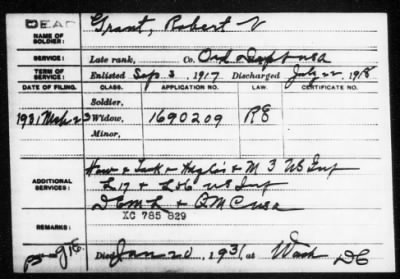 DEAD
Grant, Robert V
NAME OF SOLDIER:
SERVICE: Late rank, Co. Ord Dept USA
TERM OF SERVICE: Enlisted Sep. 3, 1917 Discharged July 22, 1918
DATE OF FILING. CLASS. APPLICATION NO. LAW. CERTIFICATE NO.
Soldier,
1931 Mch. 23 Widow, 1690209 RE
Minor,
ADDITIONAL SERVICES: & M 3 US Inf
L 17 & US Inf
DEML & QMC USA
XC 785 829
REMARKS:
Died Jan 20, 1931, at Wash DC